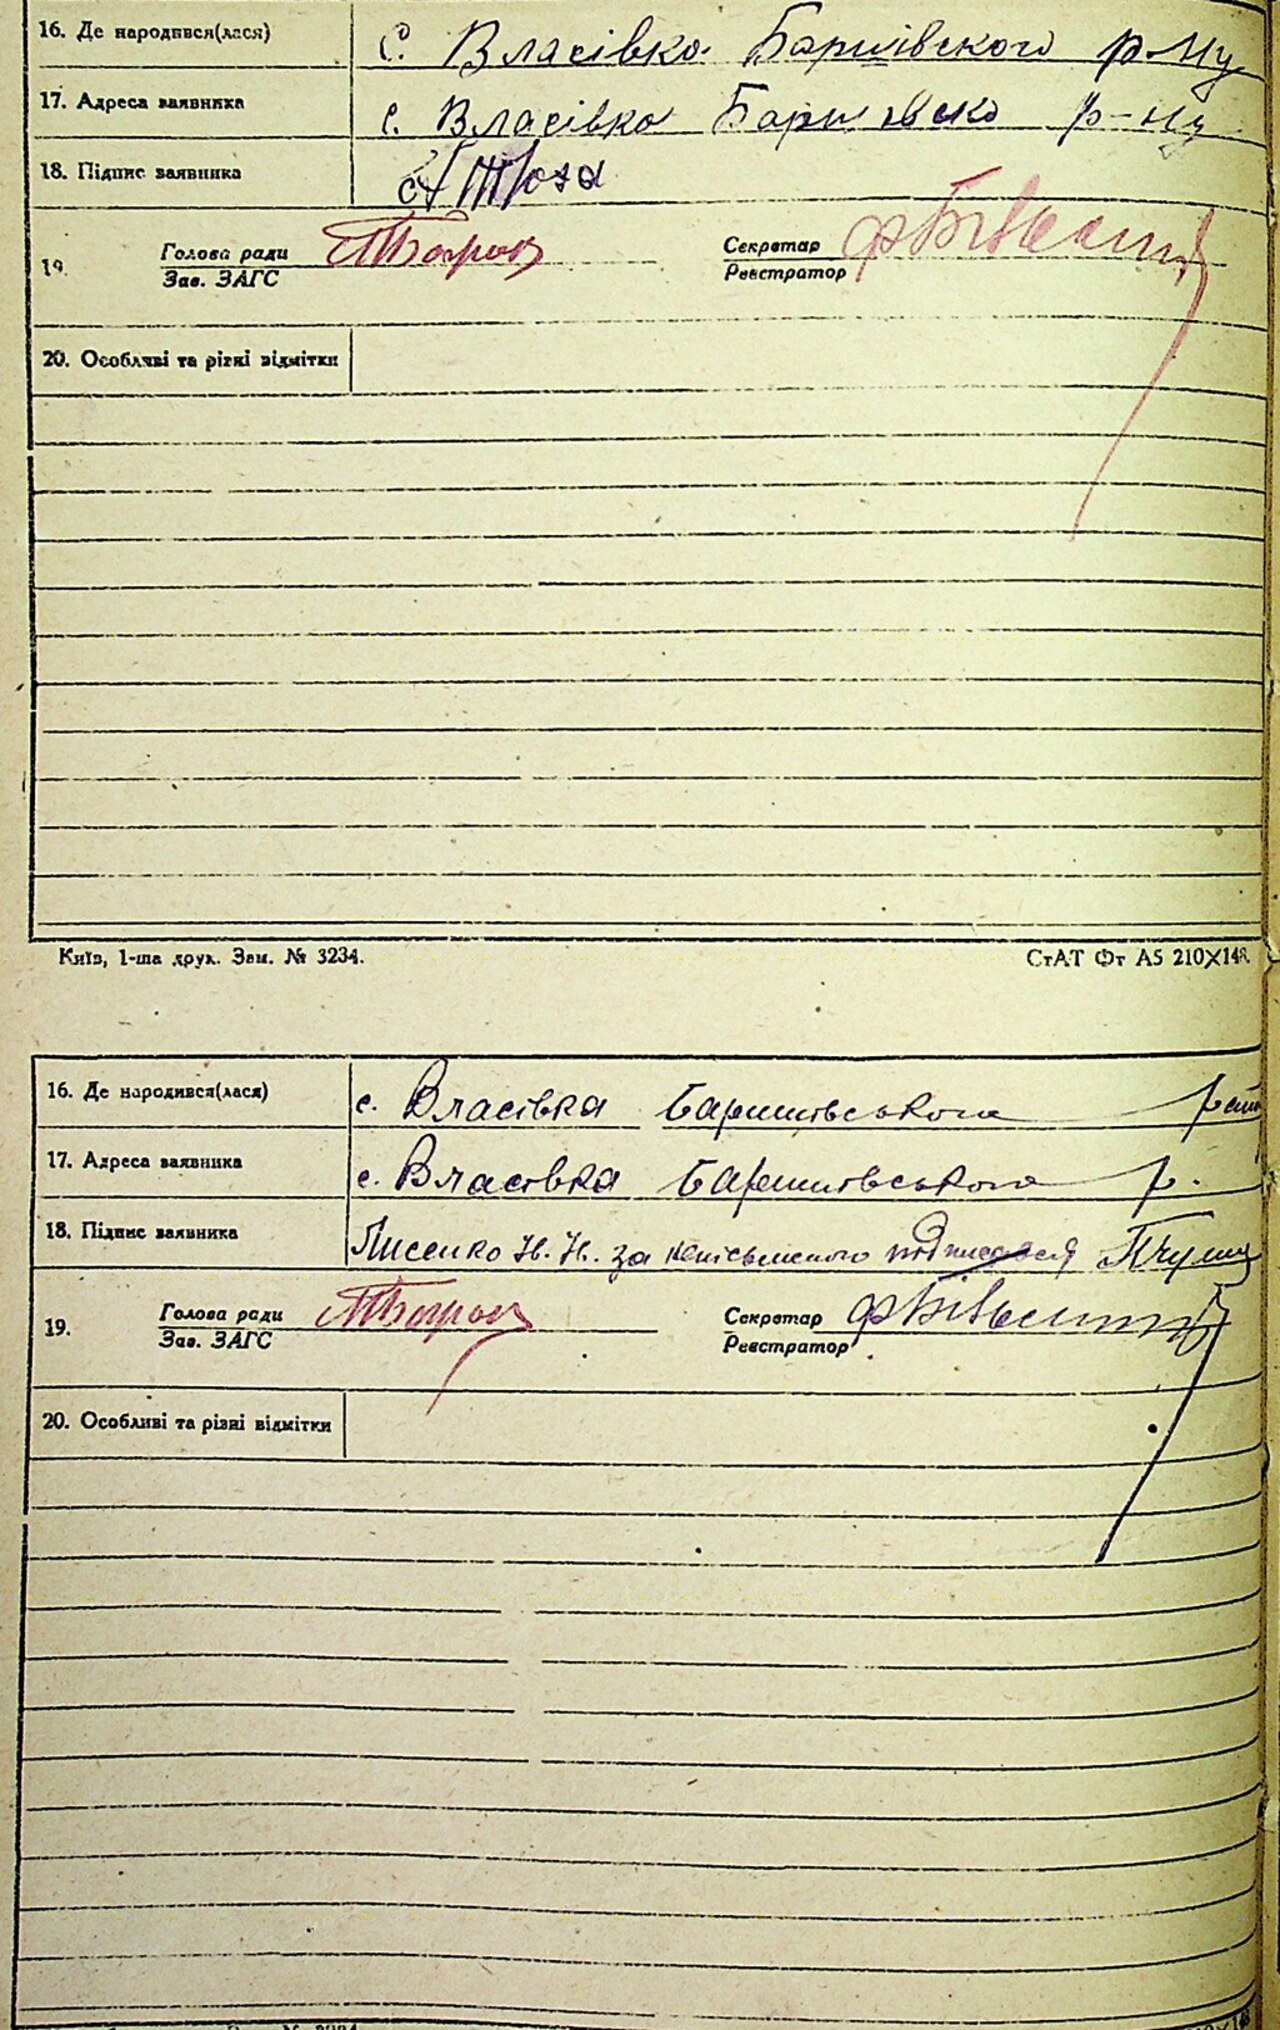 16. Де народився(лася) с. Власівка Баришівского р-ну
17. Адреса заявника с. Власівка Баришівско р-ну
18. Підпис заявника
19. Голова ради Секретар
Зав. ЗАГС Реєстратор
20. Особливі та різні відмітки
Київ, 1-ша друк. Зам. № 3234. СтАТ Фт А5 210×148.
16. Де народився(лася) с. Власівка Баришівського
17. Адреса заявника с. Власівка Баришівського р.
18. Підпис заявника Лисенко Н. Н. за
19. Голова ради Секретар
Зав. ЗАГС Реєстратор
20. Особливі та різні відмітки